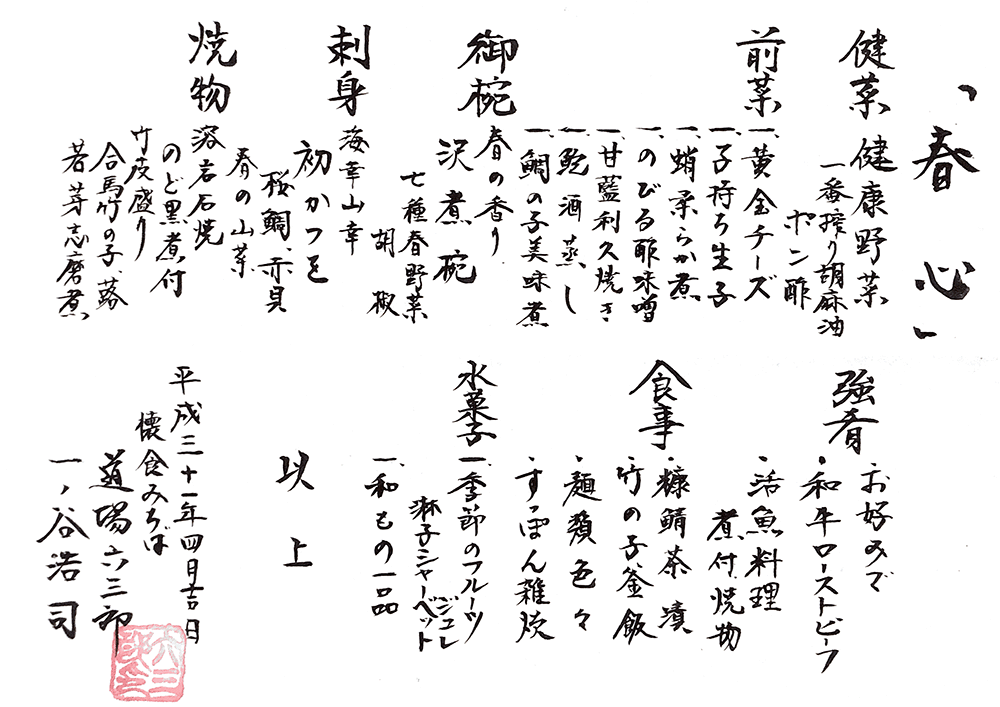 「春心」
健菜
健康野菜
一番搾り胡麻油
ポン酢
前菜
一、黄金チーズ
一、子持ち生子
一、蛸柔らか煮
一、のびる酢味噌
一、甘藍利久焼き
一、鮑酒蒸し
一、鯛の子美味煮
御椀
春の香り
沢煮椀
七種春野菜
胡椒
刺身
海幸山幸
初かつを
桜鯛、赤貝
春の山菜
焼物
溶岩石焼
のど黒煮付
竹皮盛り
合馬竹の子、蕗
若芽志磨煮
強肴
・お好みで
・和牛ローストビーフ
・活魚料理
煮付、焼物
食事
・糠鯖茶漬
・竹の子釜飯
・麺類色々
・すっぽん雑炊
水菓子
一、季節のフルーツ
ジュレ
淋子シャーベット
一、和もの一品
以上
平成三十一年四月吉日
懐食みちば
道場六三郎
一ノ谷浩司